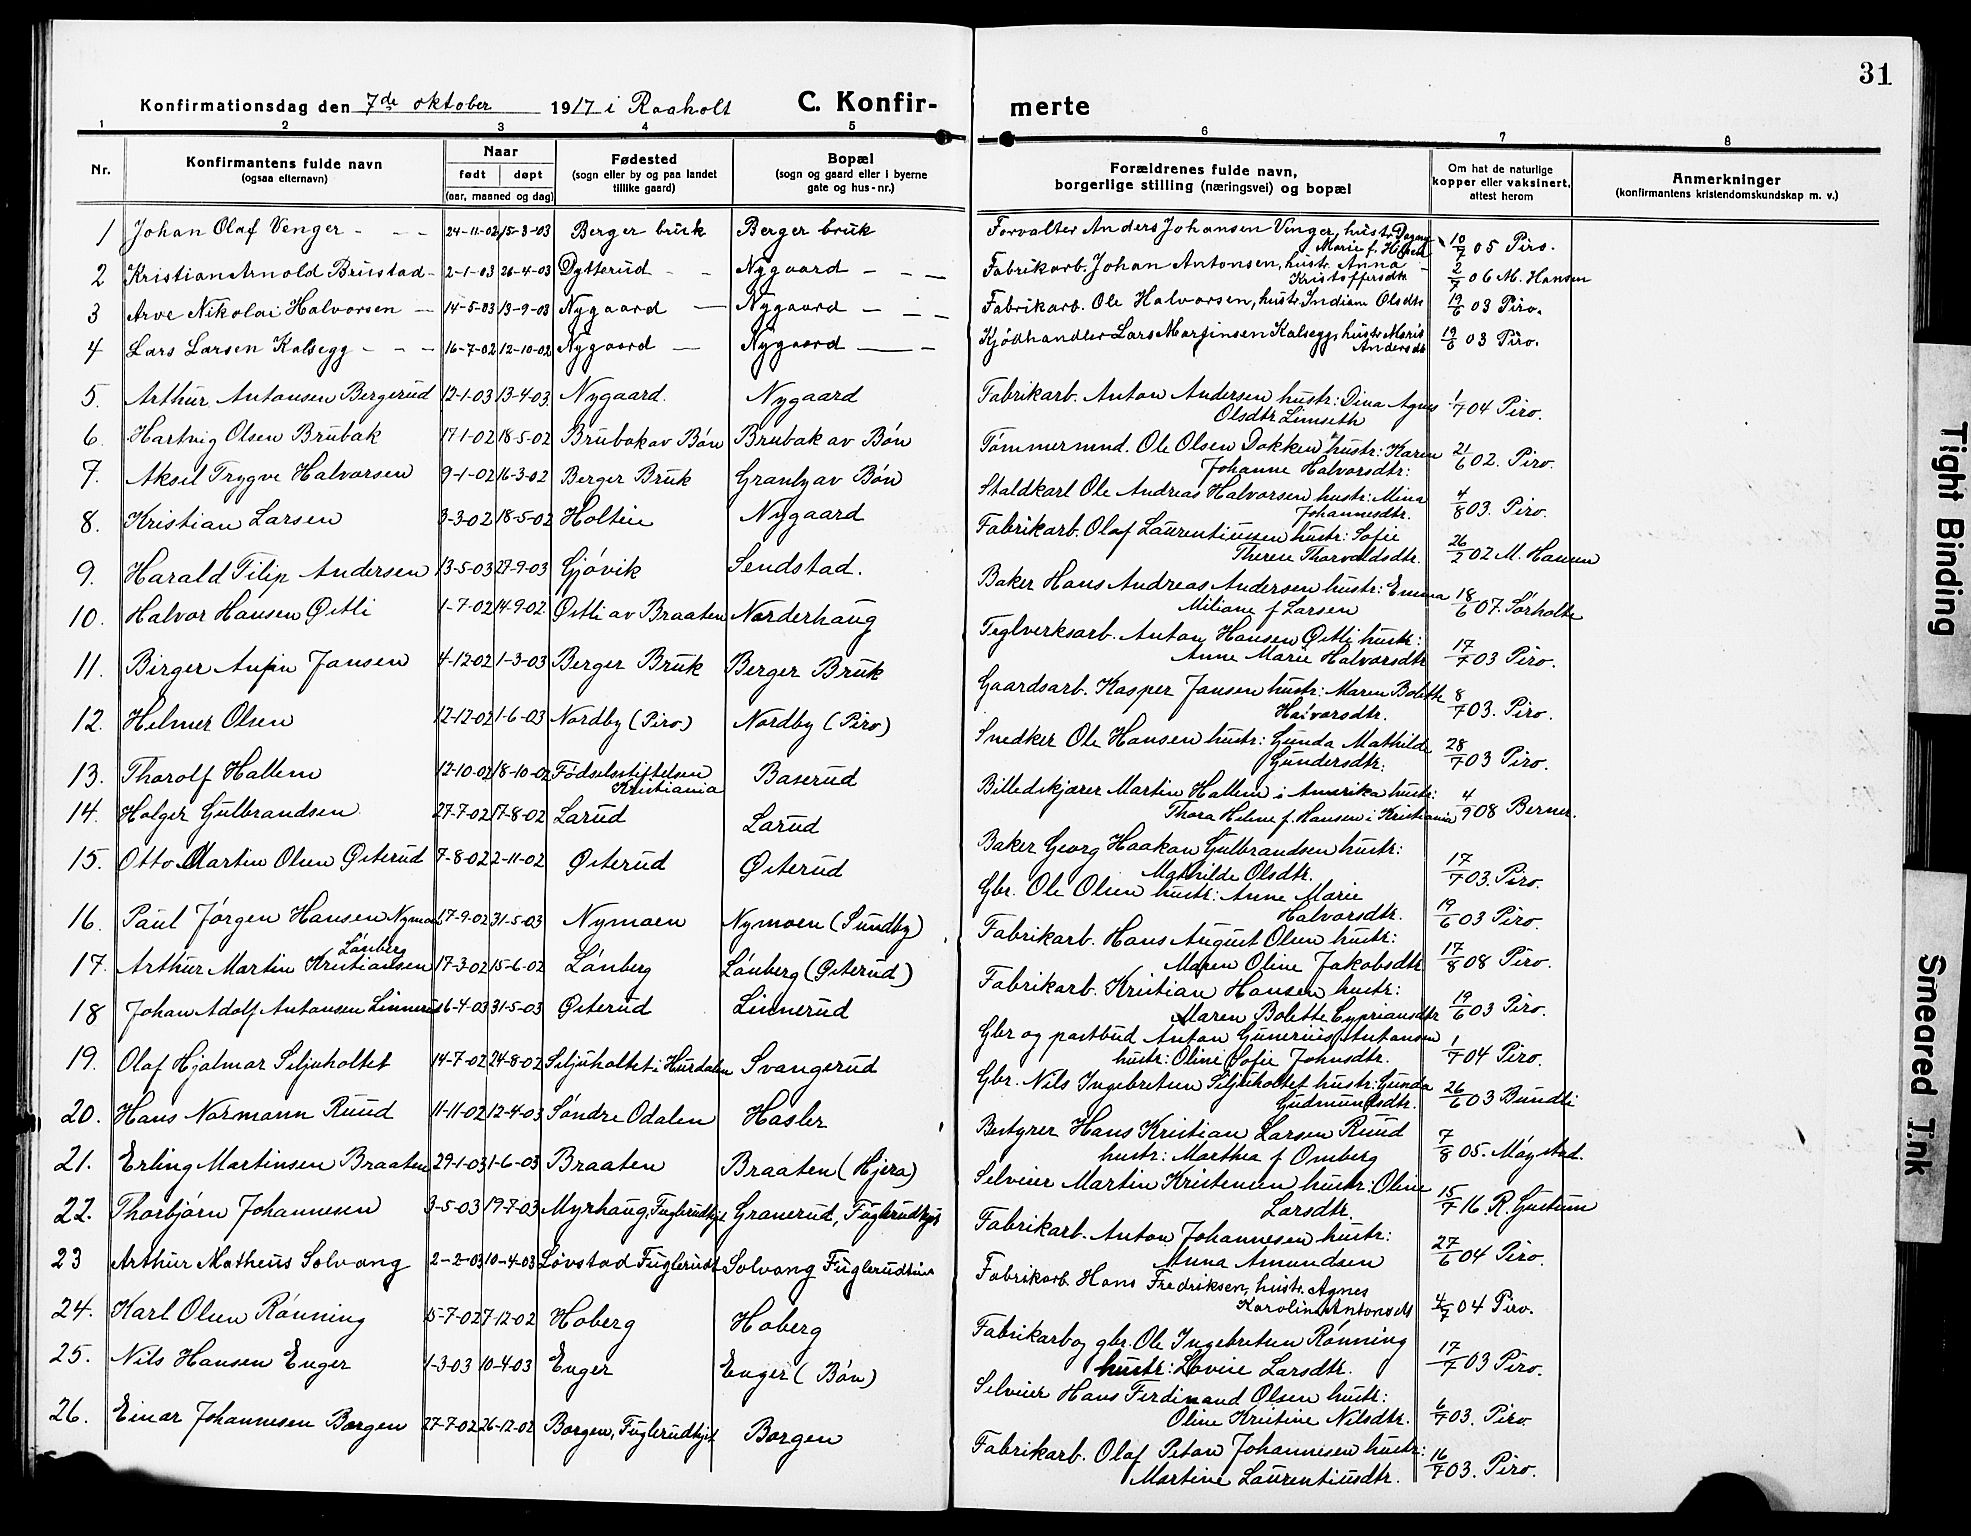 31
Konfirmationsdag den 7de oktober 1917 i Raaholt C. Konfir- merte
1 2 3 4 5 6 7 8
Nr. Konfirmantens fulde navn (ogsaa efternavn) Naar født døpt (aar, maaned og dag) Fødested (sogn eller by og paa landet tillike gaard) Bopæl (sogn og gaard eller i byerne gate og hus-nr.) Forældrenes fulde navn, borgerlige stilling (næringsvei) og bopæl Om hat de naturlige kopper eller vaksinert, attest herom Anmerkninger (konfirmantens kristendomskundskap m. v.)
1 Johan Olaf Venger - - - 24-11-02 15-3-03 Berger bruk Berger bruk Forvalter Anders Johansen Vinger, hustr. Dagny Marie f. 10/7 05 Piro.
2 Kristian Arnold Brustad - 2-1-03 26-4-03 Dytterud - - Nygaard - - - Fabrikarb. Johan Antonsen, hustr. Anna Kristoffersdtr 2/7 06 M. Hansen
3 Arve Nikolai Halvorsen - 14-5-03 13-9-03 Nygaard - Nygaard - - - Fabrikarb. Ole Halvorsen, hustr. Indiane Olsdtr 19/6 03 Piro.
4 Lars Larsen Kalsegg - - - 16-7-02 12-10-02 Nygaard - Nygaard - - Kjødhandler Lars Martinsen Kalsegg, hustr. Maris Andersdtr 19/6 03 Piro.
5. Arthur Antonsen Bergerud 12-1-03 13-4-03. Nygaard. Nygaard Fabrikarb. Anton Andersen hustr: Dina Agnes Olsdtr Limseth 1/7 04 Piro.
6. Hartvig Olsen Brubak 17-1-02 18-5-02 Brubak av Bøn Brubak av Bøn Tømmermend. Ole Olsen Dokken hustr: Karen Johanne Halvorsdtr: 21/6 02. Piro.
7. Aksel Trygve Halvorsen 9-1-02 16-3-02 Berger Bruk Granly av Bøn Staldkarl Ole Andreas Halvorsen hustr: Mina Johannesdtr. 4/8 03. Piro.
8. Kristian Larsen 3-3-02 18-5-02 Holtin Nygaard Fabrikarb. Olaf Laurentiussen hustr: Sofie Therese Thorvaldsdtr. 26/2 02 M. Hansen
9. Harald Filip Andersen 13-5-03 27-9-03 Gjøvik Sendstad. Baker Hans Andreas Andersen hustr: Emma Miliane f Larsen 18/6 07. Sørholte
10. Halvor Hansen Østli 1-7-02 14-9-02. Østli av Braaten Norderhaug Teglverksarb. Anton Hansen Østli hustr: Anne Marie Halvorsdtr 17/7 03 Piro.
11. Birger Anfin Jansen 4-12-02 1-3-03 Berger Bruk Berger Bruk Gaardsarb. Kasper Jansen hustr: Maren Bolette Halvorsdtr. 8/7 03. Piro.
12. Helmer Olsen 12-12-02 1-6-03 Nordby (Piro) Nordby (Piro) Snedker Ole Hansen hustr: Gunda Mathilde Gundersdtr: 28/7 03 Piro.
13. Thorolf Hallem 12-10-02 18-10-02 Fødselsstiftelsen Kristiania Baserud Billedskjærer Martin Hallem i Amerika hustr: Thora Helene f. Hansen i Kristiania 4/9 08 Berner.
14. Holger Gulbrandsen 27-7-02 17-8-02 Larud Larud Baker Georg Haakon Gulbrandsen hustr: Mathilde Olsdtr. 17/7 03. Piro.
15. Otto Martin Olsen Østerud 7-8-02 2-11-02 Østerud Østerud Gbr. Ole Olsen hustr: Anne Marie Halvorsdtr. 19/6 03 Piro.
16. Paul Jørgen Hansen Nymoen 17-9-02 31-5-03 Nymoen Nymoen (Sundby) Fabrikarb. Hans August Olsen hustr: Maren Oline Jakobsdtr 17/8 08 Piro.
17. Arthur Martin Kristiansen Lønberg 17-3-02 15-6-02 Lønberg Lønberg (Østerud) Fabrikarb. Kristian Hansen hustr: Maren Bolette Cypriansdtr 19/6 03 Piro.
18 Johan Adolf Antonsen Linnerud 16-4-03 31-5-03 Østerud Linnerud Gbr og postbud Anton Gunerius Antonsen hustr: Oline Sofie Johnsdtr. 1/7 04 Piro.
19. Olaf Hjalmar Siljuholtet 14-7-02 24-8-02 Siljuholtet i Hurdalen Svangerud Gbr. Nils Ingebretsen Siljuholtet hustr: Gunda Gudmundsdtr. 26/6 03 Bundli
20. Hans Normann Ruud 11-11-02 12-4-03 Søndre Odalen Hasler Bestyrer Hans Kristian Larsen Ruud hustr: Marthea f Omberg 7/8 05. Møystad.
21. Erling Martinsen Braaten 29-1-03 1-6-03 Braaten Braaten (Hjera) Selveier Martin Kristensen hustr: Oline Larsdtr. 15/7 16. R. Gustum
22. Thorbjørn Johannesen 3-5-03 19-7-03 Myrhaug, Fuglerudhjet Granerud, Fuglerudhjet Fabrikarb. Anton Johannesen hustr: Anna Amundsen 27/6 04 Piro.
23 Arthur Matheus Solvang 2-2-03 10-4-03 Løvstad Fuglerud Solvang Fabrikarb. Hans Fredriksen, hustr. Agnes Karoline Antonsdtr 4/7 04 Piro.
24. Karl Olsen Rønning 15-7-02 7-12-02 Hoberg Hoberg Fabrikarb og gbr. Ole Ingebretsen Rønning hustr: Lovise Larsdtr. 17/7 03 Piro.
25. Nils Hansen Enger 1-3-03 10-4-03 Enger Enger (Bøn) Selveier Hans Ferdinand Olsen hustr: Oline Kristine Nilsdtr. 6/7 03. Piro
26. Einar Johannesen Borgen 27-7-02 26-12-02 Borgen, Fuglerudhjet Borgen Fabrikarb. Olaf Petan Johannesen hustr: Martine Laurentiusdtr. 16/7 03. Piro.
Tight Binding
Smeared Ink